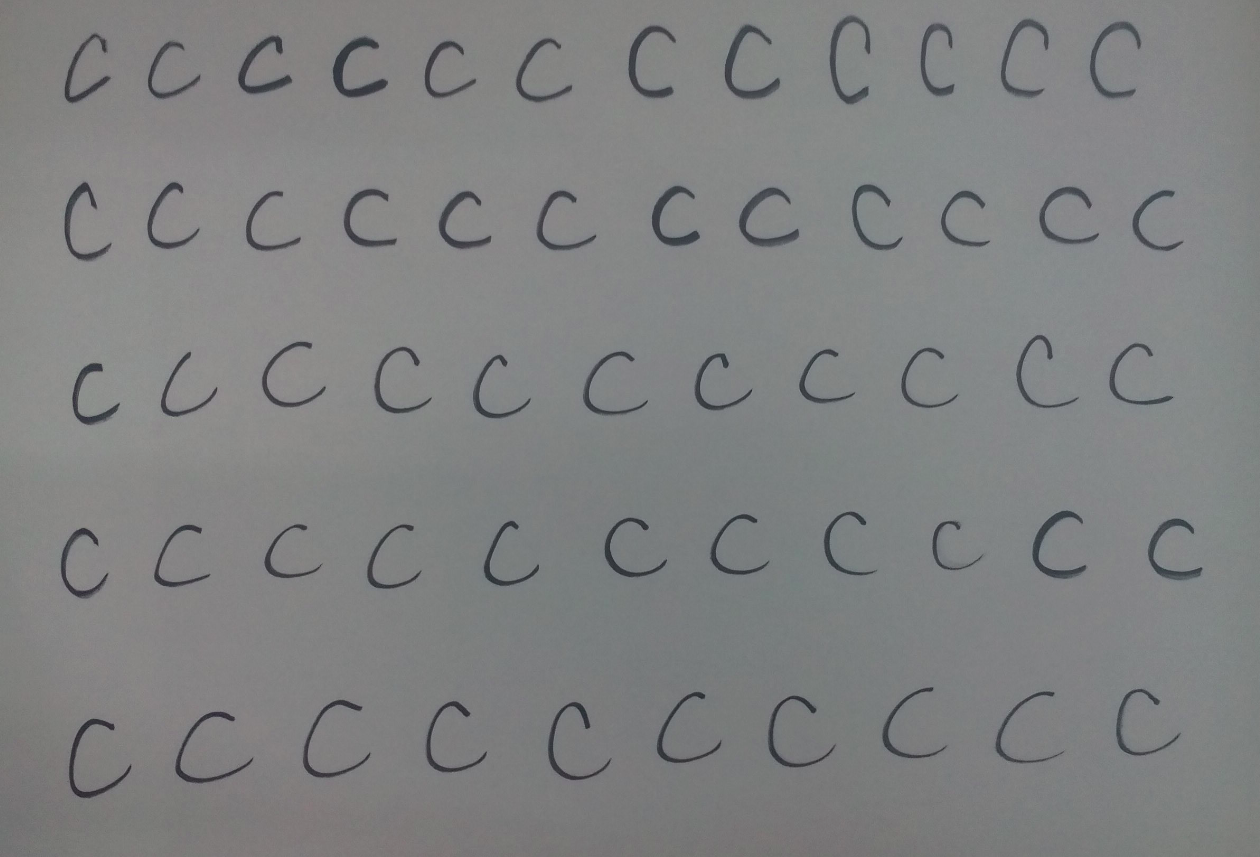 C C C C C C C C C C C C
C C C C C C C C C C C C
C C C C C C C C C C C
C C C C C C C C C C C
C C C C C C C C C C